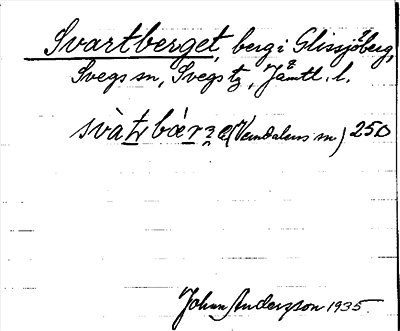 Svartberget, berg i Glissjöberg,
Svegs sn, Svegs tg, Jämtl. l.
svàtbár (Vemdalens sn) 250
Johan Anderzson 1935.